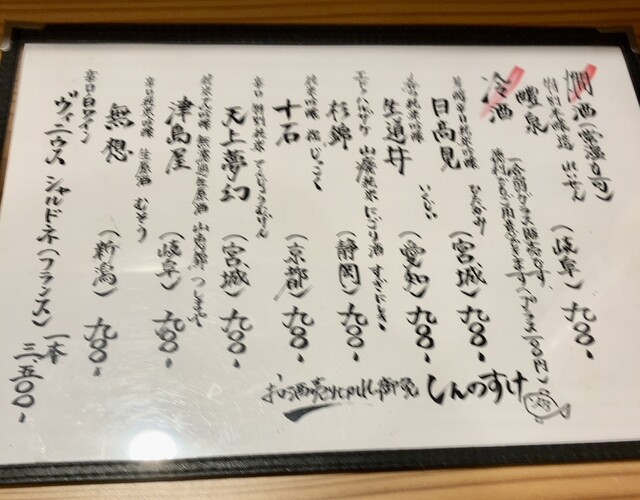 燗酒（常温も可）
特別本醸造 れいせん
醴泉（岐阜）九〇〇、
冷酒
（全部グラス販売です。
徳利もご用意できます（プラス一〇〇円）
ひたかみ
日高見（宮城）九〇〇、
純米吟醸 いくじい
生道井（愛知）九〇〇、
山廃純米 にごり酒 すぎにしき
杉錦（静岡）九〇〇、
純米吟醸 じっこく
十石（京都）九〇〇、
辛口 特別純米 てんじょうむげん
天上夢幻（宮城）九〇〇、
純米大吟醸 無濾過生原酒 山田錦 つしまや
津島屋（岐阜）九〇〇、
辛口純米吟醸 生原酒 むそう
無想（新潟）九〇〇、
辛口白ワイン
ヴィニウス シャルドネ（フランス）一本 三、五〇〇、
お酒売り切れ御免 しんのすけ